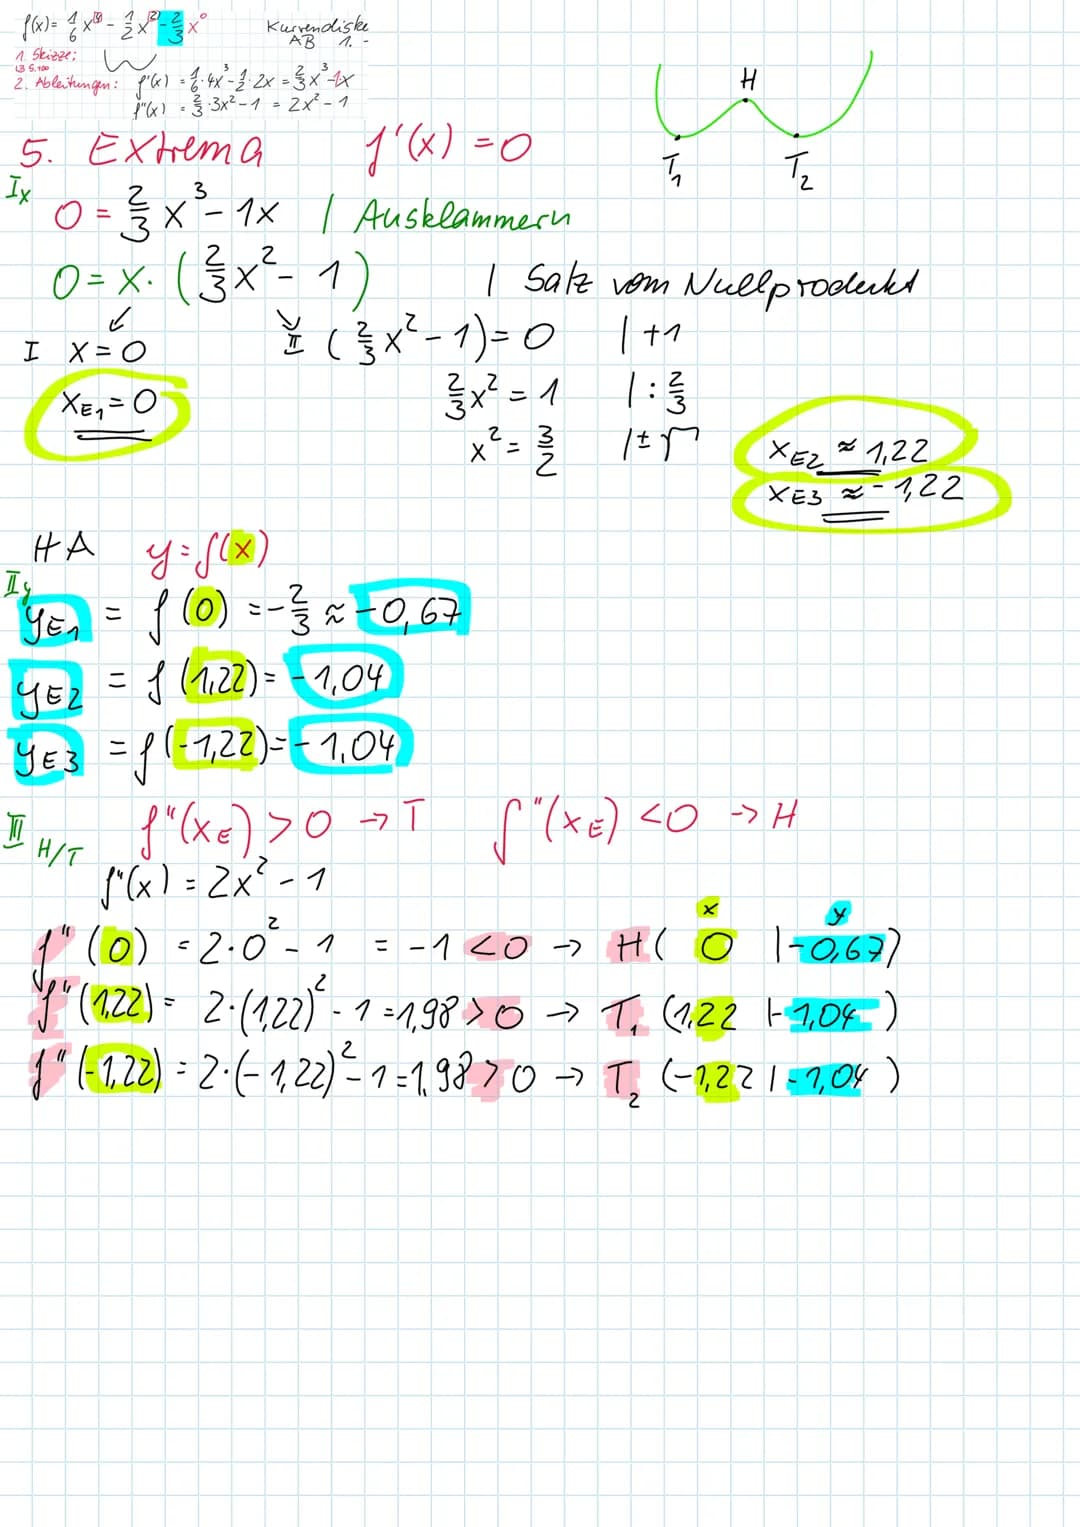 f(x) = 1/6 x^(4) - 1/2 x^(2) - 2/3 x^0
Kurvendiske
AB 1. -
1. Skizze:
LB S.100
2. Ableitungen: f'(x) = 1/6 · 4x^3 - 1/2 · 2x = 2/3 x^3 - 1x
f"(x) = 2/3 · 3x^2 - 1 = 2x^2 - 1
H
T1 T2
5. Extrema f'(x) = 0
Ix
0 = 2/3 x^3 - 1x | Ausklammern
0 = x · (2/3 x^2 - 1) | Satz vom Nullprodukt
I x = 0 II (2/3 x^2 - 1) = 0 | +1
xE1 = 0 2/3 x^2 = 1 | : 2/3
x^2 = 3/2 | ± √
xE2 ≈ 1,22
xE3 ≈ - 1,22
HA y = f(x)
IIy
yE1 = f(0) = - 2/3 ≈ -0,67
yE2 = f(1,22) = -1,04
yE3 = f(-1,22) = -1,04
III H/T f"(xE) > 0 → T f"(xE) < 0 → H
f"(x) = 2x^2 - 1
x y
f"(0) = 2·0^2 - 1 = -1 < 0 → H( 0 | -0,67)
f"(1,22) = 2·(1,22)^2 - 1 = 1,98 > 0 → T1 (1,22 | -1,04 )
f"(-1,22) = 2·(-1,22)^2 - 1 = 1,98 > 0 → T2 (-1,22 | -1,04 )